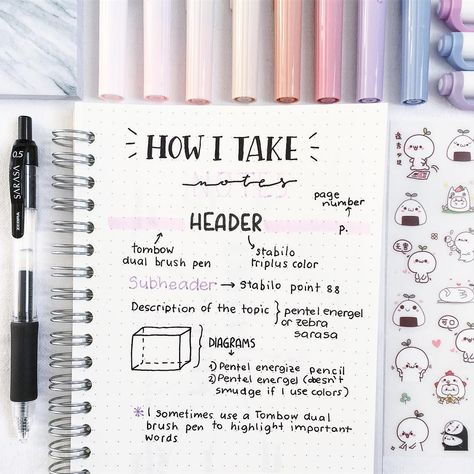 HOW I TAKE
notes
page
number
HEADER
P.
tombow
dual brush pen
stabilo
triplus color
Subheader → stabilo point 88
Description of the topic } pentel energel
or zebra
sarasa
DIAGRAMS
1) Pentel energize pencil
2) Pentel energel (doesn't
smudge if I use colors)
* I sometimes use a Tombow dual
brush pen to highlight important
words
0.5
SARASA
ZEBRA